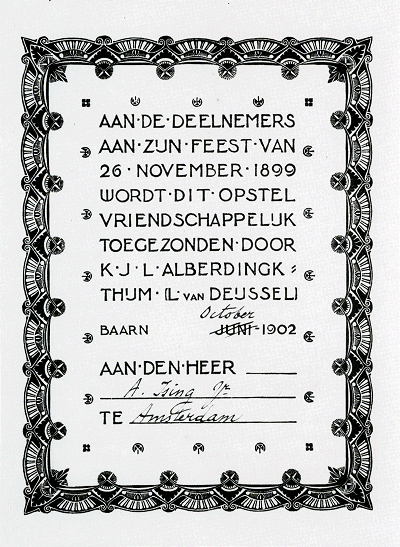 AAN·DE·DEELNEMERS
AAN·ZIJN·FEEST·VAN
26·NOVEMBER·1899
WORDT·DIT·OPSTEL
VRIENDSCHAPPELIJK
TOEGEZONDEN·DOOR
K·J·L·ALBERDINGK=
THIJM·(L·VAN DEIJSSEL)
October
BAARN JUNI-1902
AAN·DEN·HEER
A. Ising Jr.
TE Amsterdam